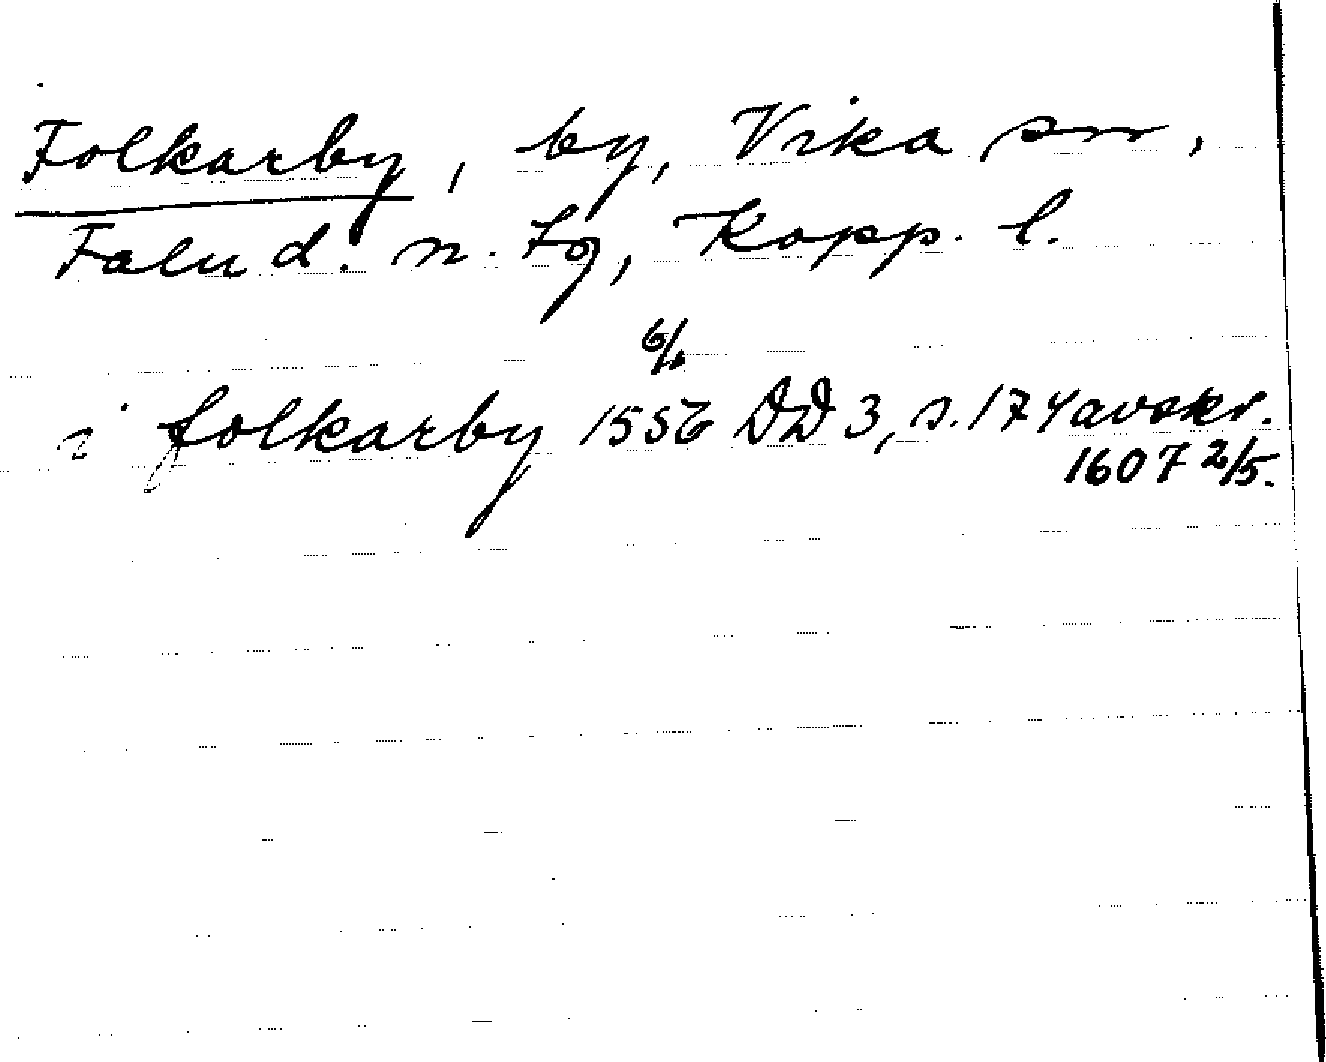 Folkarby, by, Vika sn,
Falu d. n. tg, Kopp. l.
6/6
i folkarby 1556 DD 3, s. 174 avskr.
1607 2/5.